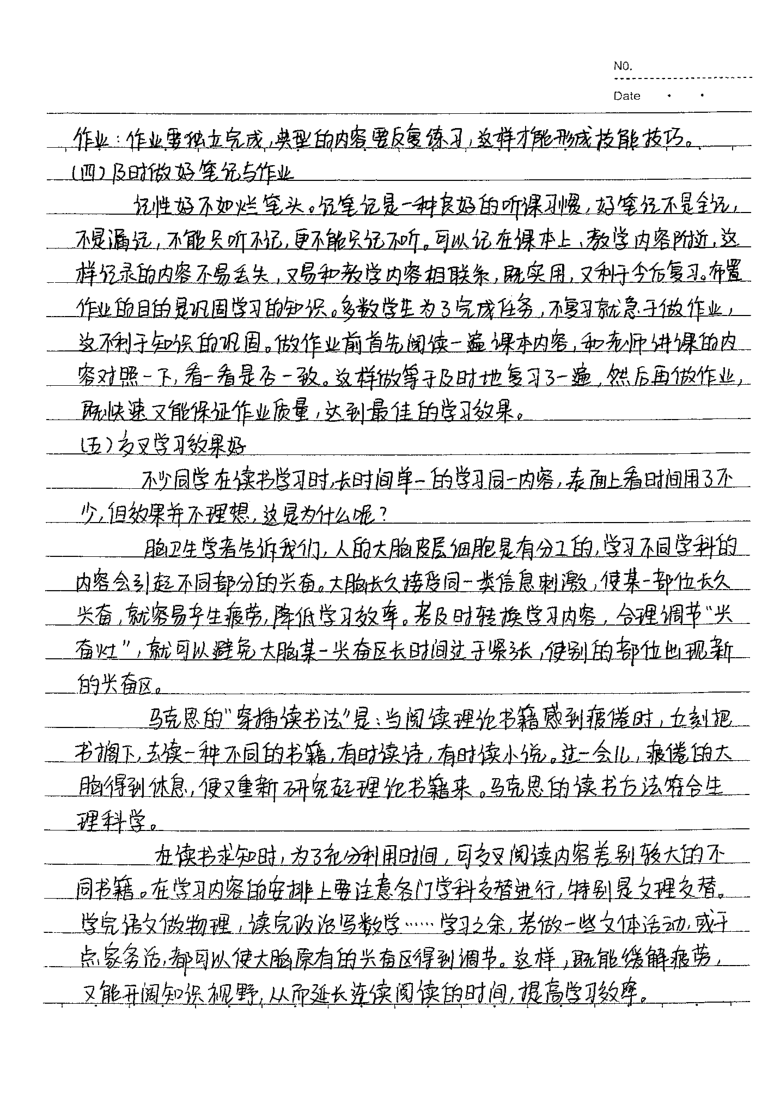 NO.
Date
作业：作业要独立完成，典型的内容要反复练习，这样才能形成技能技巧。
(四)及时做好笔记与作业
记性好不如烂笔头。记笔记是一种良好的听课习惯，好笔记不是全记，
不是漏记，不能只听不记，更不能只记不听。可以记在课本上、教学内容附近，这
样记录的内容不易丢失，又易和教学内容相联系，既实用，又利于今后复习。布置
作业的目的是巩固学习的知识。多数学生为了完成任务，不复习就急于做作业，
这不利于知识的巩固。做作业前首先阅读一遍课本内容，和老师讲课的内
容对照一下，看一看是否一致。这样做等于及时地复习了一遍，然后再做作业，
既快速又能保证作业质量，达到最佳的学习效果。
(五)交叉学习效果好
不少同学在读书学习时，长时间单一的学习同一内容，表面上看时间用了不
少，但效果并不理想，这是为什么呢？
脑卫生学者告诉我们，人的大脑皮层细胞是有分工的，学习不同学科的
内容会引起不同部分的兴奋。大脑长久接受同一类信息刺激，使某一部位长久
兴奋，就容易产生疲劳，降低学习效率。若及时转换学习内容，合理调节“兴
奋灶”，就可以避免大脑某一兴奋区长时间过于紧张，使别的部位出现新
的兴奋区。
马克思的“穿插读书法”是：当阅读理论书籍感到疲倦时，立刻把
书搁下，去读一种不同的书籍，有时读诗，有时读小说。过一会儿，疲倦的大
脑得到休息，便又重新研究起理论书籍来。马克思的读书方法符合生
理科学。
在读书求知时，为了充分利用时间，可交叉阅读内容差别较大的不
同书籍。在学习内容的安排上要注意各门学科交替进行，特别是文理交替。
学完语文做物理，读完政治写数学……学习之余，若做一些文体活动，或干
点家务活，都可以使大脑原有的兴奋区得到调节。这样，既能缓解疲劳，
又能开阔知识视野，从而延长连续阅读的时间，提高学习效率。